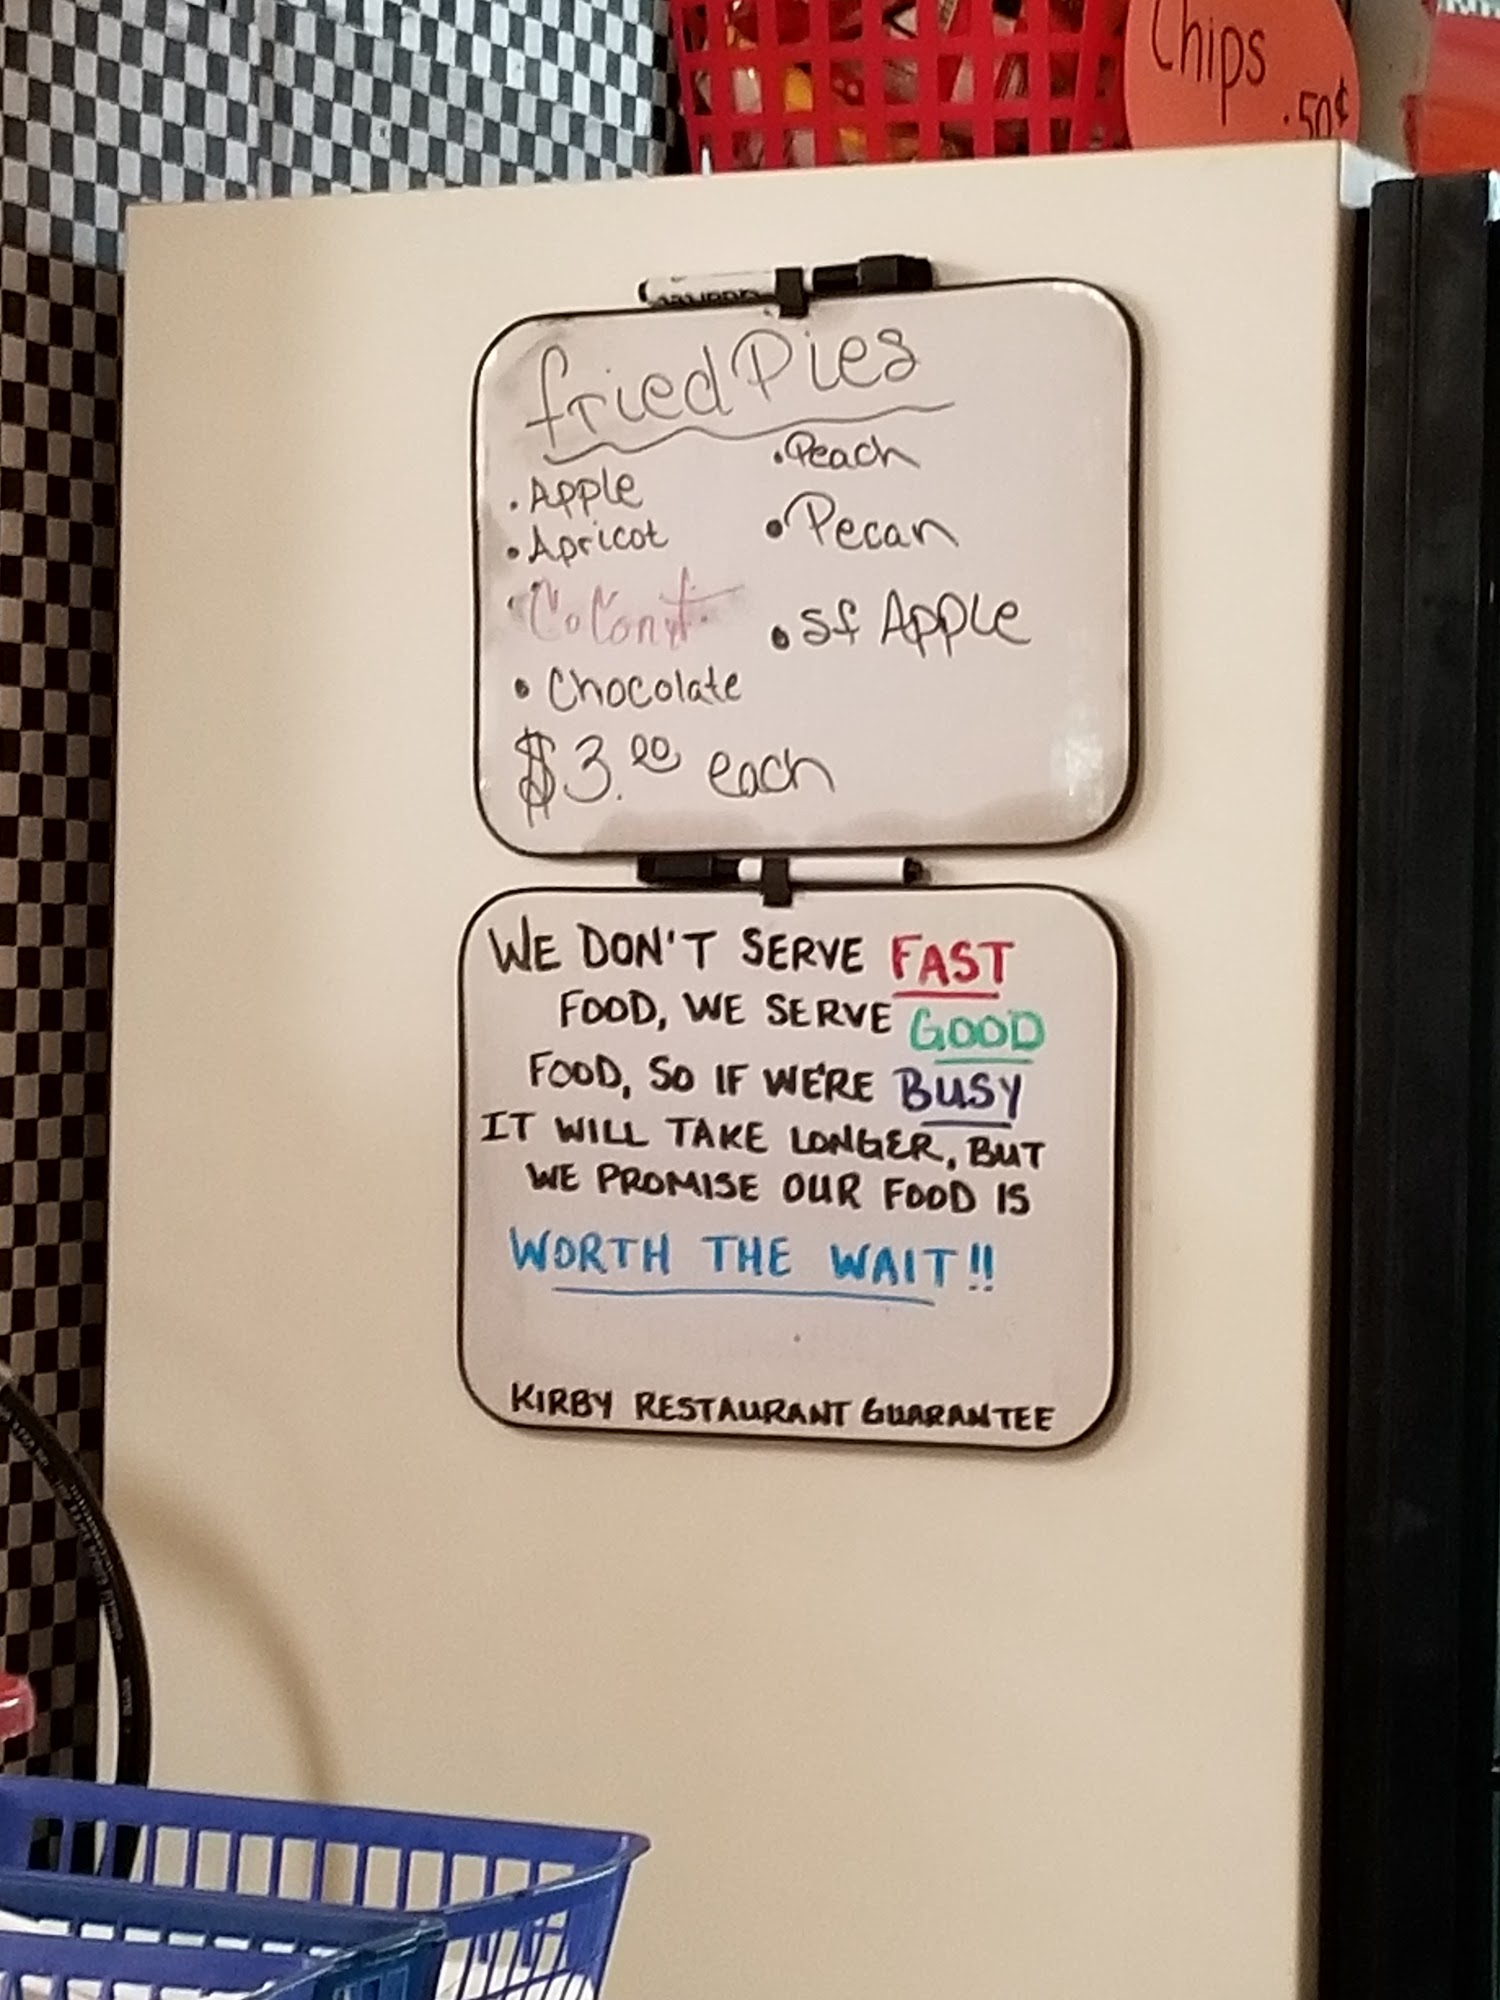 Chips
.50¢
fried Pies
• Apple
• Apricot
• Coconut
• Chocolate
• Peach
• Pecan
• Sf Apple
$3.00 each
WE DON'T SERVE FAST
FOOD, WE SERVE GOOD
FOOD, SO IF WE'RE BUSY
IT WILL TAKE LONGER, BUT
WE PROMISE OUR FOOD IS
WORTH THE WAIT!!
KIRBY RESTAURANT GUARANTEE